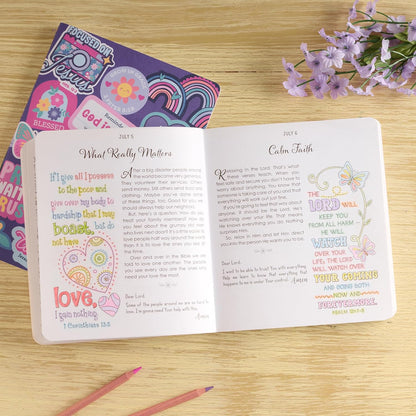 FOCUSED ON
Jesus
GROW IN GRACE
2 PETER 3:18
BLESSED
God is
JULY 5
What Really Matters
If I give all I possess
to the poor and
give over my body to
hardship that I may
boast, but do
not have
love,
I gain nothing.
1 Corinthians 13:3
After a big disaster, people around
the world become very generous.
They volunteer their services. Others
send money. Still others send food and
clothing. Maybe you've done some
of these things, too. Good for you! We
should be kind to our neighbors.
But, here's a question. How do we
treat our family members? How do
you feel about the grumpy old man
who lives next door? It's almost easier to
love people half way around the world
than it is to love the ones you see all
the time.
Over and over in the Bible we are
told to love one another. The people
you see every day are the ones who
need your love the most.
Dear Lord,
Some of the people around me are so hard to
love. I'm gonna need Your help with this.
Amen
JULY 6
Calm Faith
Relaxing in the Lord. That's what
these verses teach. When you
feel safe and secure you don't have to
worry about anything. You know that
someone is taking care of you and that
everything will work out just fine.
If you're going to feel that way about
anyone, it should be the Lord. He's
watching over your life. That means
He knows everything you do. Nothing
surprises Him.
So, relax in Him and let Him direct
you into the person He wants you to be.
Dear Lord,
I want to be able to trust You with everything.
Help me learn to know that everything that
happens to me is under Your control.
Amen
THE
LORD WILL
KEEP YOU
FROM ALL HARM
HE WILL
WATCH
OVER YOUR
LIFE; THE LORD
WILL WATCH OVER
YOUR COMING
AND GOING BOTH
NOW AND
FOREVERMORE.
PSALM 121:7-8